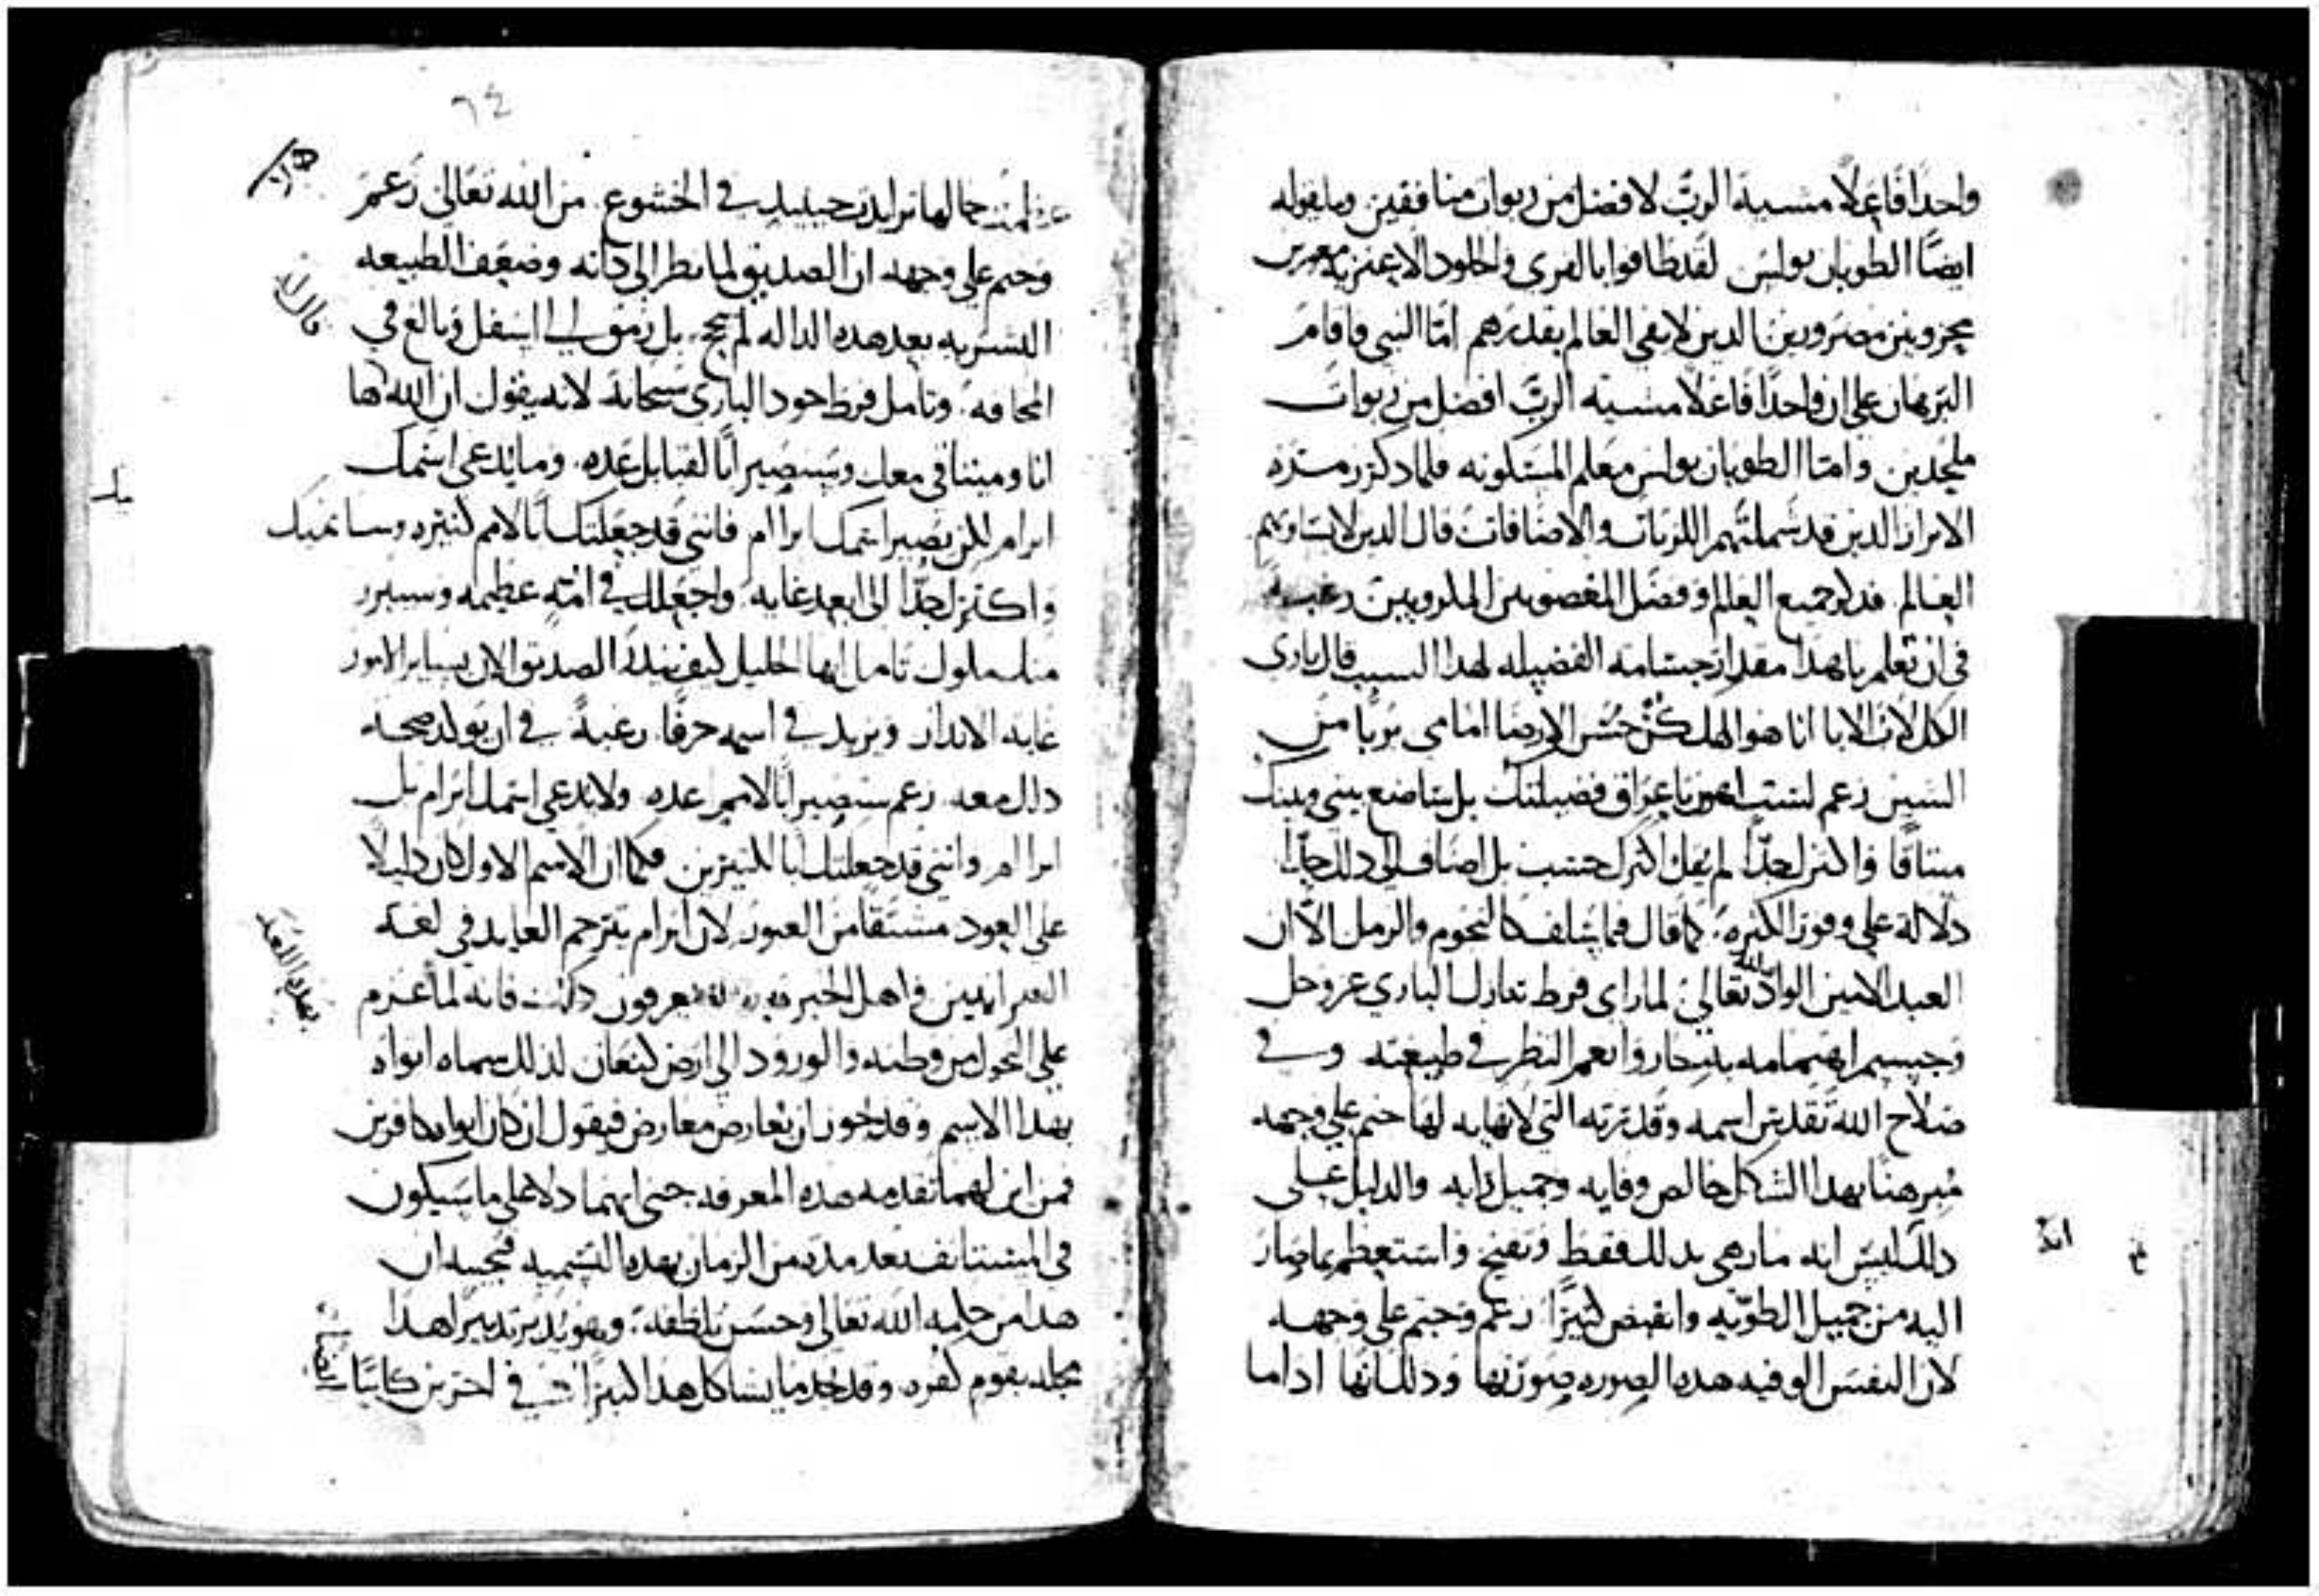 واحدًا فاعلًا مشيية الربّ لافضل من ربوات منافقين وما يقوله
ايضًا الطوبان بولس لقد طافوا بالفرى والجلود الاعنزيه معوزين
محزونين مضرورين الدين لا يفي العالم بقدرهم امّا النبي فاقام
البرهان على ان واحدًا فاعلًا مشييه الربّ افضل من ربوات
ملحدين وامّا الطوبان بولس معلم المسكونه فلما ذكر زمرة
الابرار الدين قد شملتهم اللزبات والاضافات قال الدين لا يساويهم
العالم فذكر جميع العالم وفضّل المغصوبين المكروبين رغبة
في ان تعلم بابهذا مقدار جسامه الفضيله لهدا السبب قال باري
الكل لاب الابا انا هو الهك كُن حسن الارضا امامي بريًا من
الشين زعم لست اهون باعراق فضيلتك بل ساضع بيني وبينك
ميثاقًا واكثرك جدًّا لم يقل اكثرك حسب بل اضاف الى دلك جدًا
دلالة على وفور الكثره كما قال فيما سلف كالنجوم والرمل الّا ان
العبد الامين الوادّ لله تعالى لما راى فرط تنازل الباري عز وجل
وجسيم اهتمامه به حار وانعم النظر في طبيعته وفي
صلاح الله تقدس اسمه وقدرته التي لا نهايه لها جثم على وجهه
مبرهنًا بهدا الشكل خالص وفايه وجميل رايه والدليل على
دلك ليس انه ما زهي بدلك فقط وتفنج واستعظم بما صار
اليه من جميل الطويّه وانقبض كثيرًا زعم وجثم على وجهه
لان النفس الوفيه هده الصوره صورتها ودلك انها ادا ما
٦٤
عظمت جمالها تزايدت حينيد في الخشوع من الله تعالى زعم
وجثم على وجهه ان الصديق لما نظر الى داته وضعف الطبيعه
البشريه بعد هده الداله لم يبتهج بل رمق الى اسفل وبالغ في
المخافه وتامل فرط جود الباري سبحانه لانه يقول ان الله قال له ها
انا وميثاقي معك وستصير ابًا لقبايل عده وما يُدعى اسمك
ابرام لكن يصير اسمك ابراام فانني قد جعلتك ابًا لامم كثيره وسانميك
واكثرك جدًّا الى ابعد غايه واجعلك في امّه عظيمه وسيبرز
منك ملوك تامل ايها الخليل كيف يُنذر الصديق الان بساير الامور
غايه الاندار ويزيد في اسمه حرفًا رغبةً في ان يولد صحه
دلك معه زعم ستصير ابًا لامم عده ولا يدعى اسمك ابرام بل
ابراام وانني قد جعلتك ابًا لكثيرين فكما ان الاسم الاول كان دليلًا
على العود مشتقًا من العبور لان ابرام يترجم العابد في لغه
العبرانيين واهل الخبره بهده اللغه يعرفون دلك فانه لما عزم
على التحول من وطنه والورود الى ارض كنعان لذلك سماه ابواه
بهدا الاسم وقد يجوز ان يُعارض معارض فيقول ان كان ابواه كافرين
فمن اين لهما تقدمه هده المعرفه حتى انهما دلا على ما سيكون
في المستانف بعد مده من الزمان بهده التسميه فنجيبه ان
هدا من حكمه الله تعالى وحسن تلطفه وهو يُدبر تدبيرًا هدا
محله بقوم كفره وقد نجد ما يشاكل هدا كثيرًا في اخرين كاينًا ايضًا